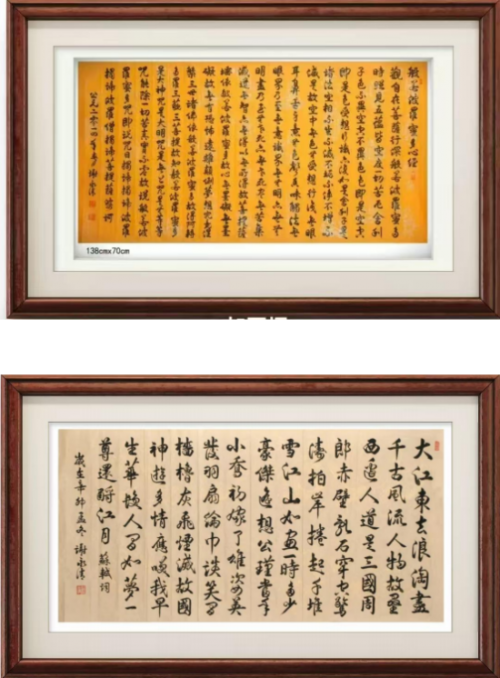 般若波羅蜜多心經
觀自在菩薩行深般若波羅蜜多
時照見五蘊皆空度一切苦厄舍利
子色不異空空不異色色即是空空
即是色受想行識亦復如是舍利子是
諸法空相不生不滅不垢不淨不增不
減是故空中無色無受想行識無眼
耳鼻舌身意無色聲香味觸法無
眼界乃至無意識界無無明亦無無
明盡乃至無老死亦無老死盡無苦集
滅道無智亦無得以無所得故菩提薩
埵依般若波羅蜜多故心無罣礙無罣
礙故無有恐怖遠離顛倒夢想究竟涅
槃三世諸佛依般若波羅蜜多故得阿耨
多羅三藐三菩提故知般若波羅蜜多
是大神咒是大明咒是無上咒是無等等
咒能除一切苦真實不虛故說般若波
羅蜜多咒即說咒曰揭諦揭諦波羅
揭諦波羅僧揭諦菩提薩婆訶
公元二零一四年
138cmx70cm
大江東去浪淘盡
千古風流人物故壘
西邊人道是三國周
郎赤壁亂石穿空驚
濤拍岸捲起千堆
雪江山如畫一時多少
豪傑遙想公瑾當年
小喬初嫁了雄姿英
發羽扇綸巾談笑間
檣櫓灰飛煙滅故國
神遊多情應笑我早
生華髮人間如夢一
尊還酹江月 蘇軾詞